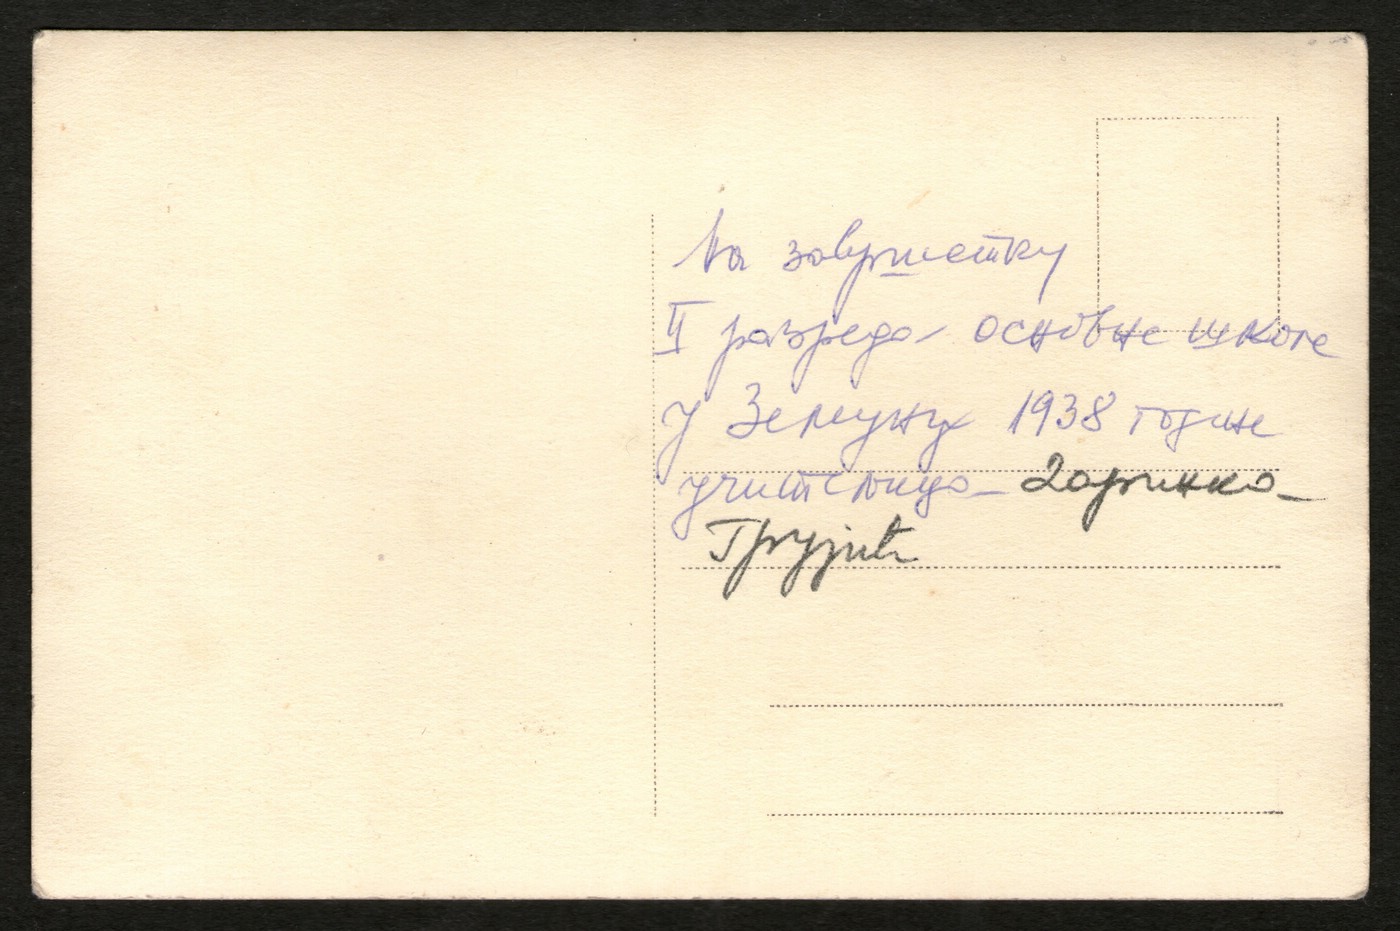 На завршетку
II разреда основне школе
у Земуну 1938 године
учитељица Даринка
Грујић